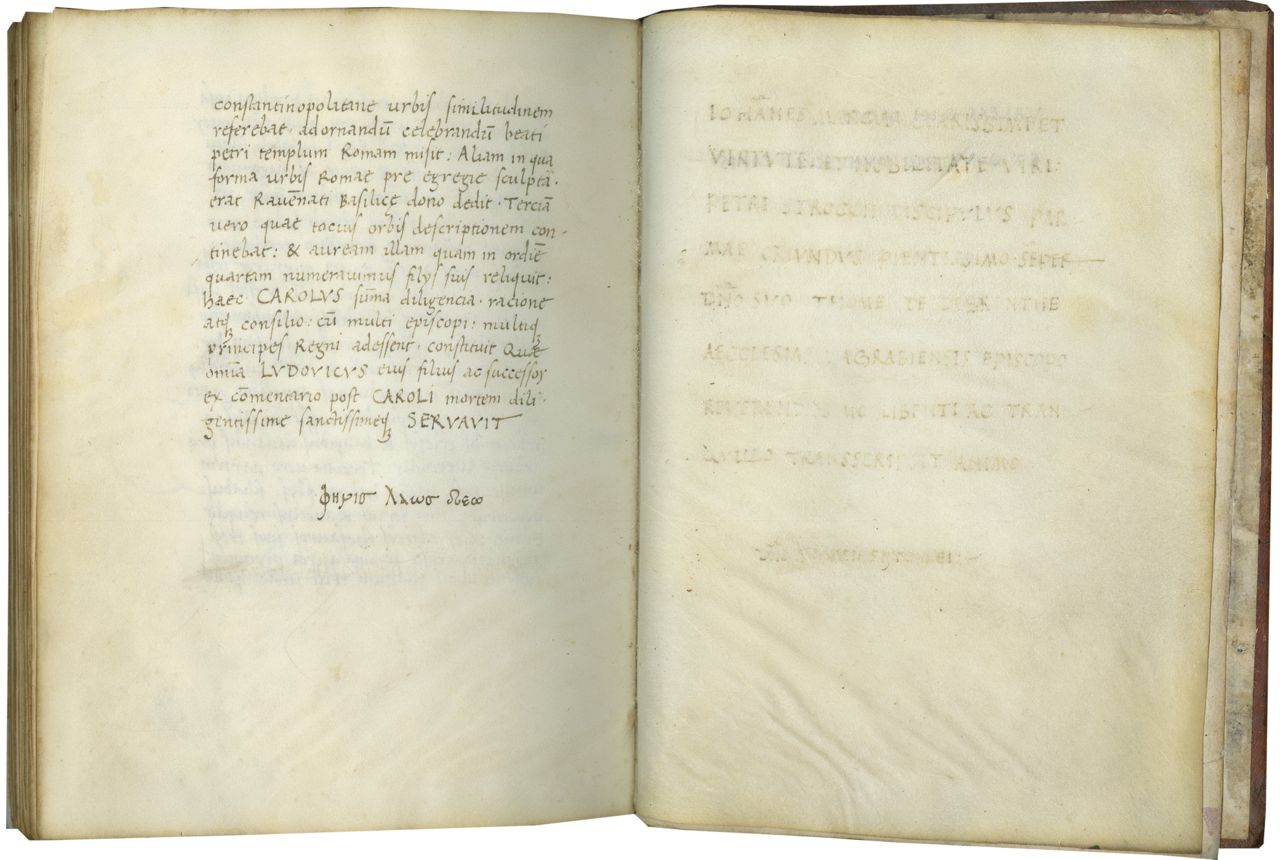 constantinopolitane urbis similitudinem
referebat· adornandū celebrandū beati
petri templum Romam misit: Aliam in qua
forma urbis Romae pre egregie sculptā·
erat Ravēnati Basilicę dono dedit· Terciā
vero quae tocius orbis descriptionem con-
tinebat: & auream illam quam in ordiē
quartam numeravimus filys suis reliquit:
haec CAROLVS sūma diligencia· racione
atq consilio: cū multi episcopi: multiq
principes Regni adessent· constituit Quae
omīa LVDOVICVS eius filius ac successor
ex cōmentario post CAROLI mortem dili·
gentissime sanctissimeq SERVAVIT
φηνισ λαωσ δεω
IOHĀNES ET
VIRTVTE ET NOBILITATE VIRI:
PETRI STROCCHI DISCIPVLVS PAR
MAE ORIVNDVS PIENTISSIMO SĒPER
DN̄O SVO THOME TE DEBENTHE
AECCLESIAE AGRABIENSIS EPISCOPO
REVERENDO HOC LIBENTI AC TRAN
QVILLO TRANSSCRIPSIT ANIMO